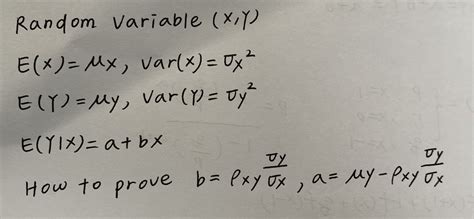 Random Variable (X,Y)
E(X)=μx, var(X)=σx²
E(Y)=μy, var(Y)=σy²
E(Y|X)=a+bx
How to prove b=ρxy σy/σx, a=μy-ρxy σy/σx